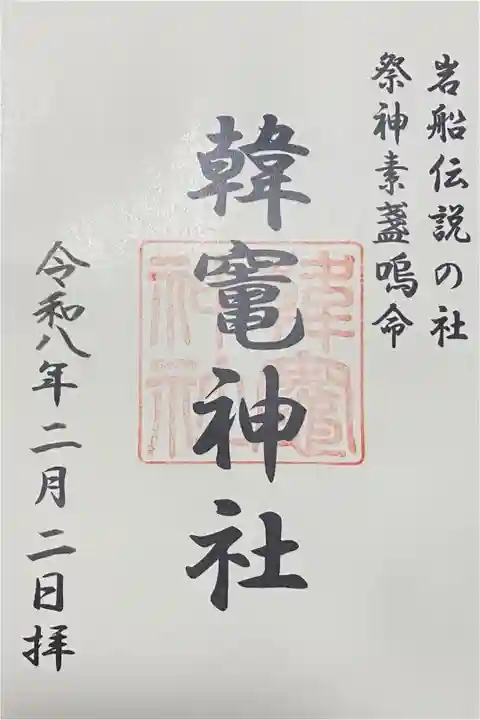 岩船伝説の社
祭神素盞嗚命
韓竈神社
令和八年二月二日拝
韓竈
神社